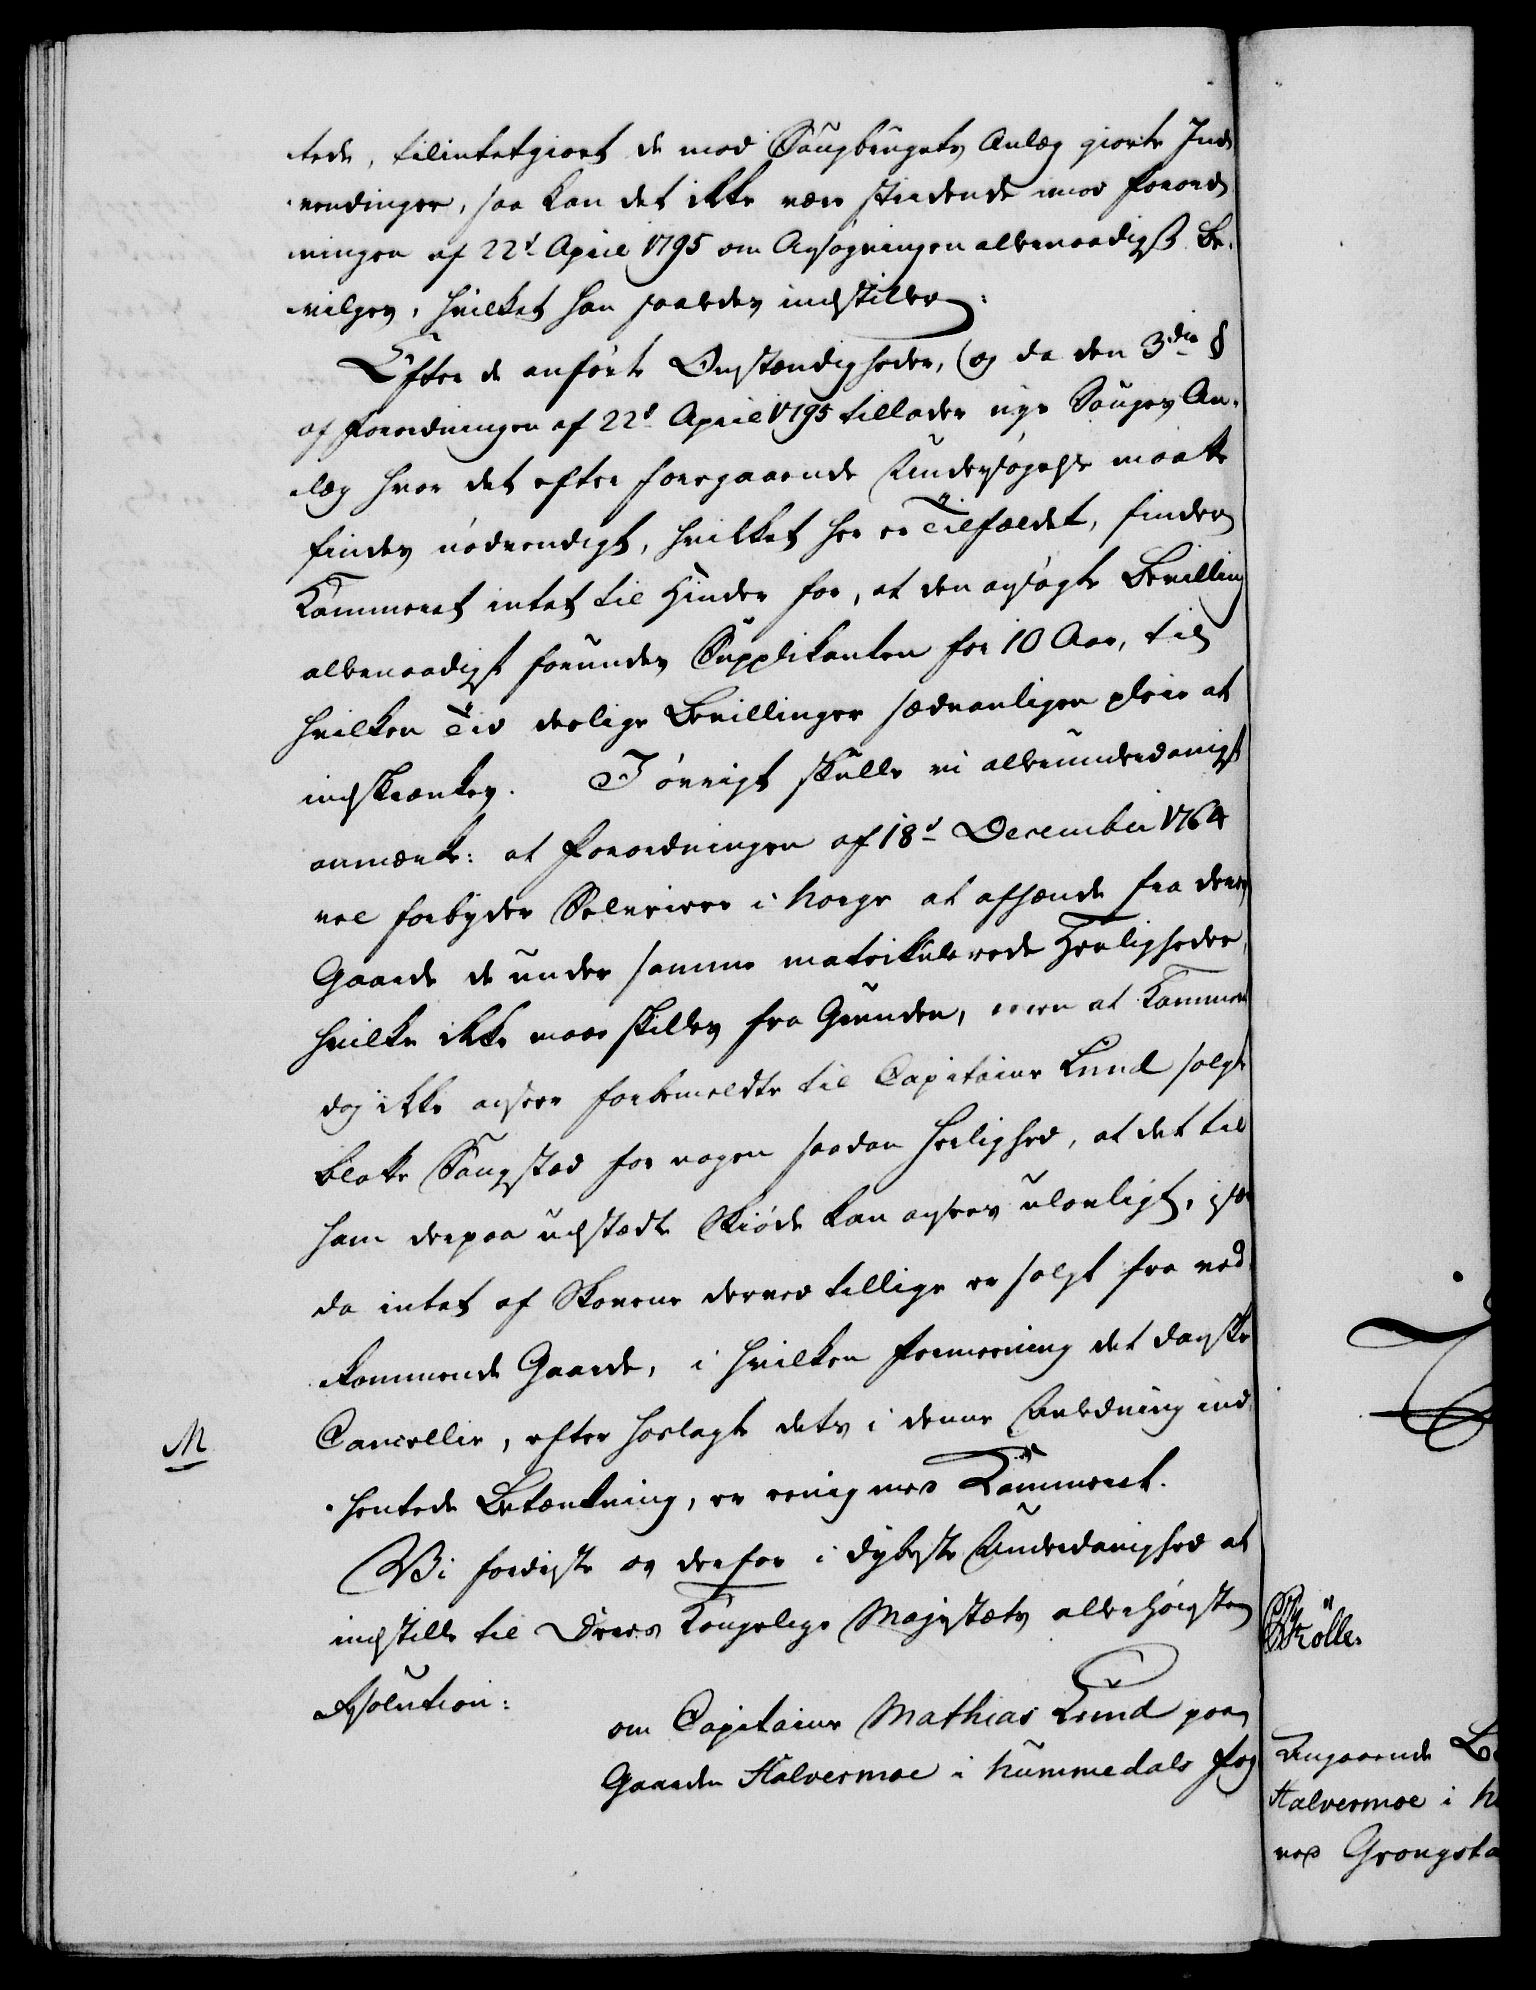 tede, tilintetgiort de mod Saugbrugets Anlæg giorte Ind
vendinger, saa kan det ikke være stridende imod Forord
ningen af 22d April 1795 om Ansøgningen allernaadigst be-
vilges, hvilket han saaledes indstiller:
Efter de anførte Omstændigheder, (og da den 3die §
af Forordningen af 22d April 1795 tillader nye Sauges An-
læg hvor det efter foregaaende Undersøgelse maatte
findes nødvendigt, hvilket her er Tilfældet, finder
Kammeret intet til Hinder for, at den ansøgte Bevilling
allernaadigst forundes Supplikanten for 10 Aar, til
hvilken Tid deslige Bevillinger sædvanligen pleie at
indskrænkes. I øvrigt skulle vi allerunderdanigst
anmærke: at Forordningen af 18d December 1764
vel forbyder Selveiere i Norge at afhænde fra deres
Gaarde de under samme matrikulerede Herligheder,
hvilke ikke maae skilles fra Grunden, men at Kammeret
dog ikke anseer forbemeldte til Capitaine Lund solgte
blotte Saugstad for nogen saadan Herlighed, at det til
ham derpaa udstædte Skiøde kan ansees ulovligt, især
da intet af Skovene derved tillige er solgt fra ved-
kommende Gaarde, i hvilken Formeening det danske
Cancellie, efter hoslagte dets i denne Anledning ind-
M
hentede Betænkning, er eenig med Kammeret.
Vi fordriste os derfor i dybeste Underdanighed at
indstille til Deres Kongelige Majestæts allerhøieste
Resolution:
om Capitaine Mathias Lund paa
Gaarden Halvermoe i Nummedals Fog
Angaaende Be
Halvermoe i N
ved Grongsta